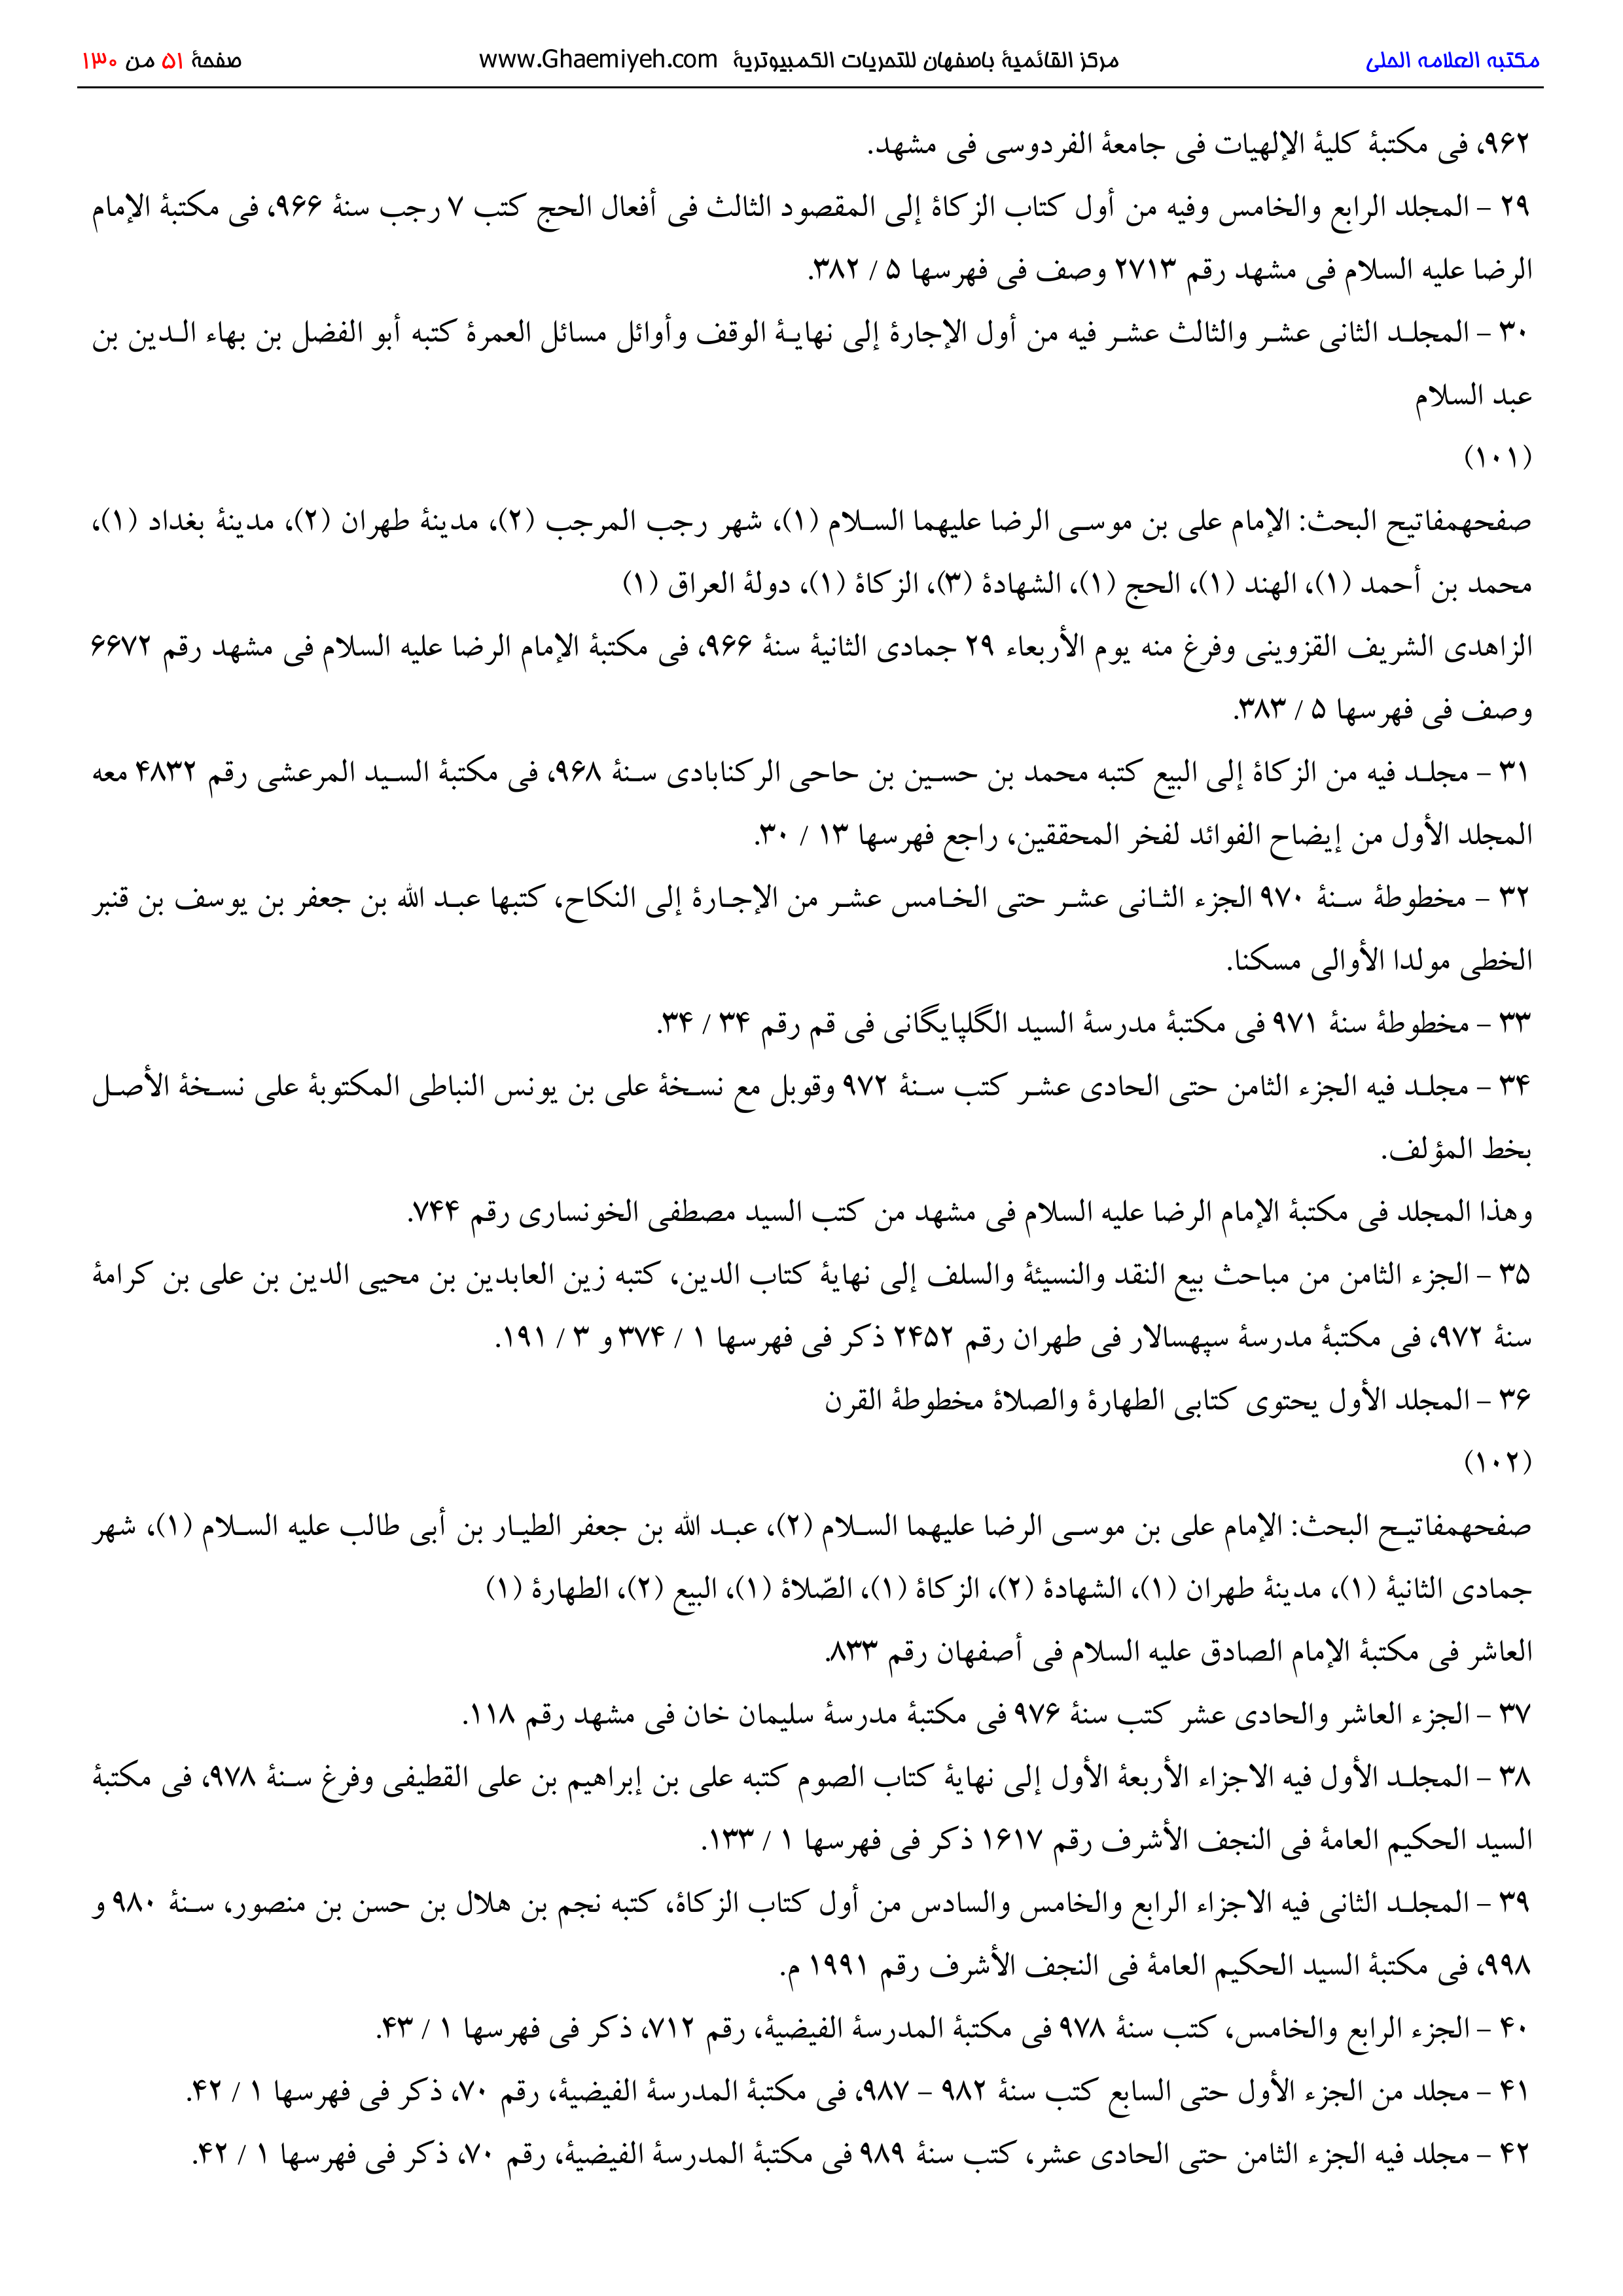 مكتبه العلامه الحلی مركز القائمیۀ باصفهان للتحریات الكمبیوتریۀ www.Ghaemiyeh.com صفحۀ ۵۱ من ۱۳۰
۹۶۲، فی مكتبۀ كلیۀ الإلهیات فی جامعۀ الفردوسی فی مشهد.
۲۹ – المجلد الرابع والخامس وفیه من أول كتاب الزكاۀ إلی المقصود الثالث فی أفعال الحج كتب ۷ رجب سنۀ ۹۶۶، فی مكتبۀ الإمام
الرضا علیه السلام فی مشهد رقم ۲۷۱۳ وصف فی فهرسها ۵ / ۳۸۲.
۳۰ – المجلد الثانی عشر والثالث عشر فیه من أول الإجارۀ إلی نهایۀ الوقف وأوائل مسائل العمرۀ كتبه أبو الفضل بن بهاء الدین بن
عبد السلام
(۱۰۱)
صفحهمفاتیح البحث: الإمام علی بن موسی الرضا علیهما السلام (۱)، شهر رجب المرجب (۲)، مدینۀ طهران (۲)، مدینۀ بغداد (۱)،
محمد بن أحمد (۱)، الهند (۱)، الحج (۱)، الشهادۀ (۳)، الزكاۀ (۱)، دولۀ العراق (۱)
الزاهدی الشریف القزوینی وفرغ منه یوم الأربعاء ۲۹ جمادی الثانیۀ سنۀ ۹۶۶، فی مكتبۀ الإمام الرضا علیه السلام فی مشهد رقم ۶۶۷۲
وصف فی فهرسها ۵ / ۳۸۳.
۳۱ – مجلد فیه من الزكاۀ إلی البیع كتبه محمد بن حسین بن حاحی الركنابادی سنۀ ۹۶۸، فی مكتبۀ السید المرعشی رقم ۴۸۳۲ معه
المجلد الأول من إیضاح الفوائد لفخر المحققین، راجع فهرسها ۱۳ / ۳۰.
۳۲ – مخطوطۀ سنۀ ۹۷۰ الجزء الثانی عشر حتی الخامس عشر من الإجارۀ إلی النكاح، كتبها عبد الله بن جعفر بن یوسف بن قنبر
الخطی مولدا الأوالی مسكنا.
۳۳ – مخطوطۀ سنۀ ۹۷۱ فی مكتبۀ مدرسۀ السید الگلپایگانی فی قم رقم ۳۴ / ۳۴.
۳۴ – مجلد فیه الجزء الثامن حتی الحادی عشر كتب سنۀ ۹۷۲ وقوبل مع نسخۀ علی بن یونس النباطی المكتوبۀ علی نسخۀ الأصل
بخط المؤلف.
وهذا المجلد فی مكتبۀ الإمام الرضا علیه السلام فی مشهد من كتب السید مصطفی الخونساری رقم ۷۴۴.
۳۵ – الجزء الثامن من مباحث بیع النقد والنسیئۀ والسلف إلی نهایۀ كتاب الدین، كتبه زین العابدین بن محیی الدین بن علی بن كرامۀ
سنۀ ۹۷۲، فی مكتبۀ مدرسۀ سپهسالار فی طهران رقم ۲۴۵۲ ذكر فی فهرسها ۱ / ۳۷۴ و ۳ / ۱۹۱.
۳۶ – المجلد الأول یحتوی كتابی الطهارۀ والصلاۀ مخطوطۀ القرن
(۱۰۲)
صفحهمفاتیح البحث: الإمام علی بن موسی الرضا علیهما السلام (۲)، عبد الله بن جعفر الطیار بن أبی طالب علیه السلام (۱)، شهر
جمادی الثانیۀ (۱)، مدینۀ طهران (۱)، الشهادۀ (۲)، الزكاۀ (۱)، الصّلاۀ (۱)، البیع (۲)، الطهارۀ (۱)
العاشر فی مكتبۀ الإمام الصادق علیه السلام فی أصفهان رقم ۸۳۳.
۳۷ – الجزء العاشر والحادی عشر كتب سنۀ ۹۷۶ فی مكتبۀ مدرسۀ سلیمان خان فی مشهد رقم ۱۱۸.
۳۸ – المجلد الأول فیه الاجزاء الأربعۀ الأول إلی نهایۀ كتاب الصوم كتبه علی بن إبراهیم بن علی القطیفی وفرغ سنۀ ۹۷۸، فی مكتبۀ
السید الحكیم العامۀ فی النجف الأشرف رقم ۱۶۱۷ ذكر فی فهرسها ۱ / ۱۳۳.
۳۹ – المجلد الثانی فیه الاجزاء الرابع والخامس والسادس من أول كتاب الزكاۀ، كتبه نجم بن هلال بن حسن بن منصور، سنۀ ۹۸۰ و
۹۹۸، فی مكتبۀ السید الحكیم العامۀ فی النجف الأشرف رقم ۱۹۹۱ م.
۴۰ – الجزء الرابع والخامس، كتب سنۀ ۹۷۸ فی مكتبۀ المدرسۀ الفیضیۀ، رقم ۷۱۲، ذكر فی فهرسها ۱ / ۴۳.
۴۱ – مجلد من الجزء الأول حتی السابع كتب سنۀ ۹۸۲ – ۹۸۷، فی مكتبۀ المدرسۀ الفیضیۀ، رقم ۷۰، ذكر فی فهرسها ۱ / ۴۲.
۴۲ – مجلد فیه الجزء الثامن حتی الحادی عشر، كتب سنۀ ۹۸۹ فی مكتبۀ المدرسۀ الفیضیۀ، رقم ۷۰، ذكر فی فهرسها ۱ / ۴۲.